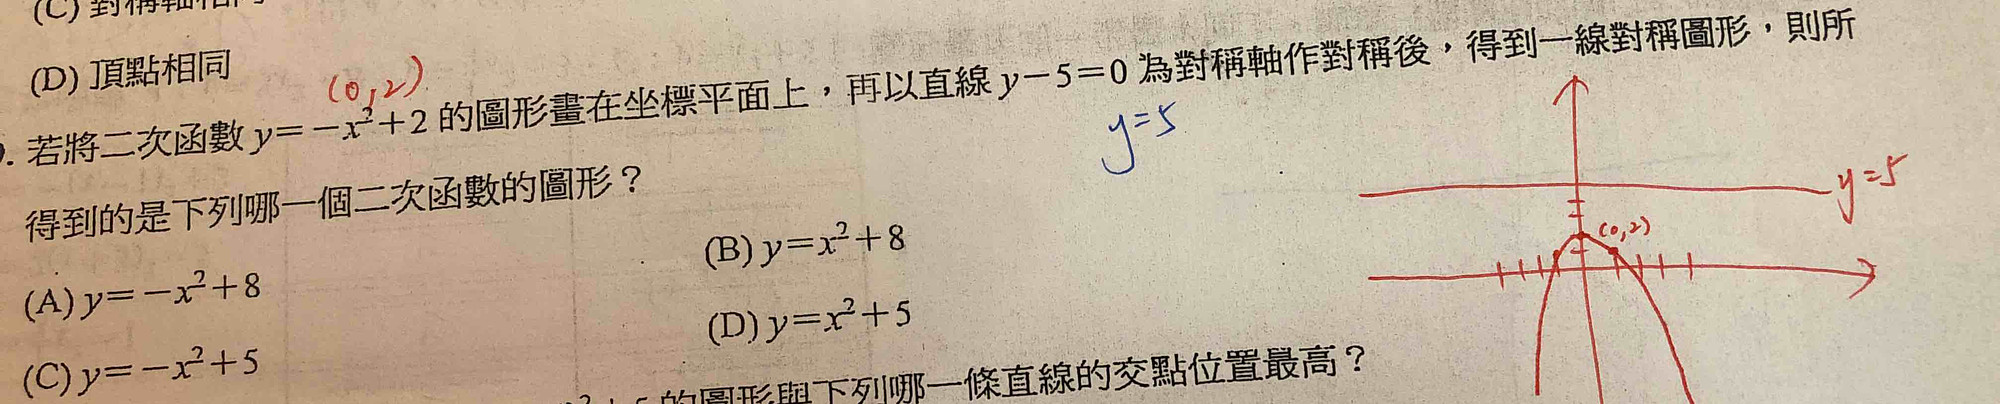 (C) 對稱軸相同
(D) 頂點相同
(0,2)
. 若將二次函數 y=-x²+2 的圖形畫在坐標平面上，再以直線 y-5=0 為對稱軸作對稱後，得到一線對稱圖形，則所
y=5
得到的是下列哪一個二次函數的圖形？
(A) y=-x²+8
(B) y=x²+8
(C) y=-x²+5
(D) y=x²+5
y=5
(0,2)
的圖形與下列哪一條直線的交點位置最高？